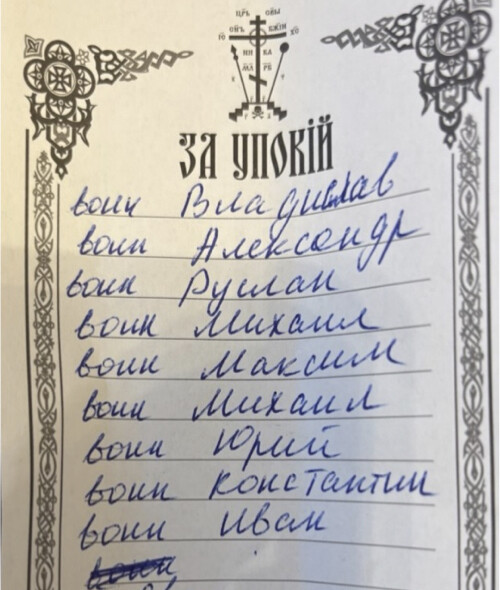 ЦРЬ СЛЫ
ІС ХС
СНЪ БЖІИ
НИ КА
К Т
МЛ РБ
Г А
ЗА УПОКІЙ
воин Владислав
воин Александр
воин Руслан
воин Михаил
воин Максим
воин Михаил
воин Юрий
воин Константин
воин Иван
воин